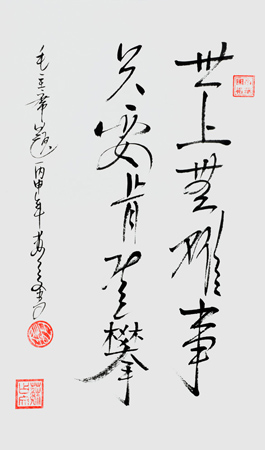 世上無難事
只要肯登攀
毛主席題 丙申年